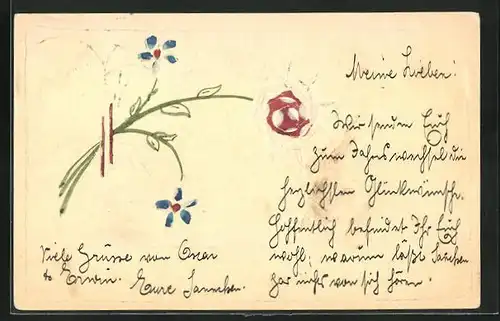 Meine Lieben!
Wir senden Euch
zum Jahreswechsel die
herzlichsten Glückwünsche.
Hoffentlich befindet Ihr Euch
wohl; warum läßt
gar nichts von sich hören.
Viele Grüsse von Oscar
& Erwin. Eure